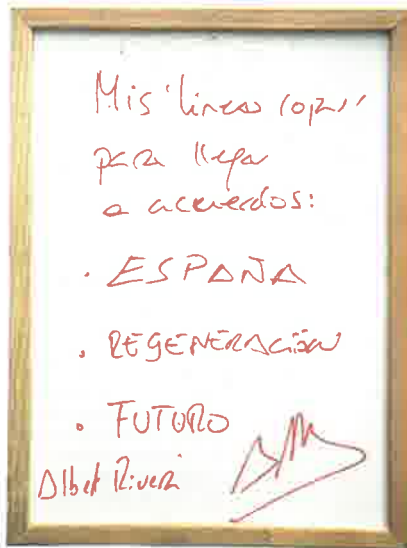 Mis 'líneas rojas'
para llegar
a acuerdos:
· ESPAÑA
· REGENERACIÓN
· FUTURO
Albert Rivera